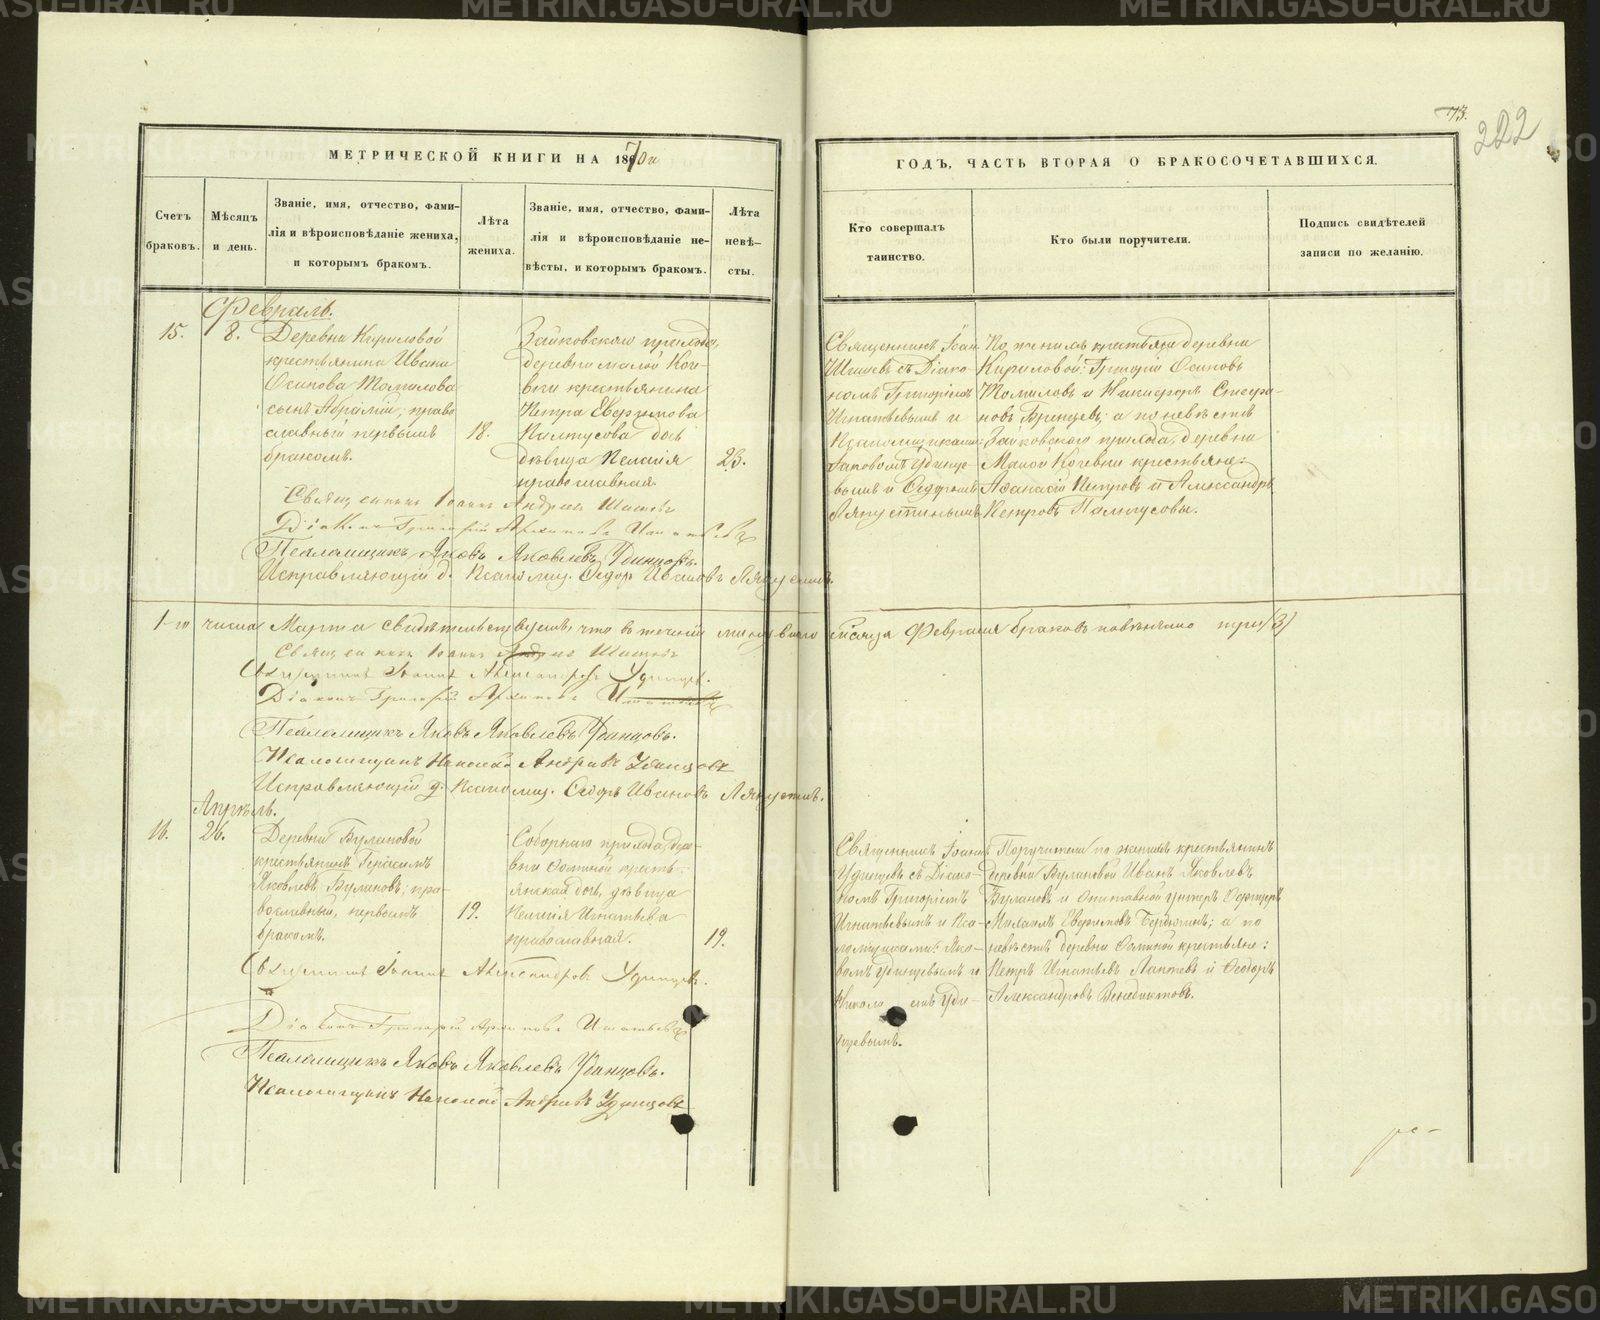 73.
222
МЕТРИЧЕСКОЙ КНИГИ НА 1870й
ГОДЪ, ЧАСТЬ ВТОРАЯ О БРАКОСОЧЕТАВШИХСЯ.
Счетъ
браковъ.
Мѣсяцъ
и день.
Званіе, имя, отчество, фами-
лія и вѣроисповѣданіе жениха,
и которымъ бракомъ.
Лѣта
жениха.
Званіе, имя, отчество, фами-
лія и вѣроисповѣданіе не-
вѣсты, и которымъ бракомъ.
Лѣта
невѣ-
сты.
Кто совершалъ
таинство.
Кто были поручители.
Подпись свидѣтелей
записи по желанію.
Февраль.
15.
8.
Деревни Кириловой
крестьянина Ивана
Осипова Томилова
сынъ Абрамій; право
славный первымъ
бракомъ.
18.
Зайковского прихода,
деревни малой Коч-
вки крестьянина
Петра Евфимова
Палтусова дочь
дѣвица Пелагія
православная
23.
Священникъ Іоан
Шишевъ съ Діако-
номъ Григоріемъ
Игнатьевымъ и
Псаломщиками:
Іаковомъ Удинце-
вымъ и Федоромъ
Ляпустинымъ
По женихѣ крестьяне деревни
Кириловой: Григорій Осиповъ
Томиловъ и Никифоръ Стефа-
новъ Бренцевъ; а по невѣстѣ
Зайковского прихода, деревни
Малой Кочевки крестьяне:
Афанасій Петровъ и Александръ
Петровъ Палтусовы.
Священникъ Іоаннъ Андреевъ Шишевъ
Діаконъ Григорій Архиповъ Игнатьевъ
Псаломщикъ Яковъ Яковлевъ Удинцовъ.
Исправляющій д. Псаломщ. Федоръ Ивановъ Ляпустинъ.
1-го числа Марта свидѣтельствуемъ, что въ теченіи минувшаго мѣсяца Февраля браковъ повѣнчано три (3)
Священникъ Іоаннъ Шишевъ
Священникъ Іоаннъ Александровъ Удинцевъ.
Діаконъ Григорій Архиповъ Игнатьевъ
Псаломщикъ Яковъ Яковлевъ Удинцовъ.
Псаломщикъ Николай Андреевъ Удинцовъ
Исправляющій д. Псаломщ. Федоръ Ивановъ Ляпустинъ.
Апрѣль.
16.
26.
Деревни Булановой
крестьянинъ Герасимъ
Яковлевъ Булановъ; пра-
вославный, первымъ
бракомъ.
19.
Соборнаго прихода, дере-
вни Фоминой кресть-
янская дочь, дѣвица
Пелагія Игнатьева
православная.
19.
Священникъ Іоаннъ
Удинцевъ съ Діако-
номъ Григоріемъ
Игнатьевымъ и Пса-
ломщиками: Яко-
вомъ Удинцевымъ и
Никола емъ Уди-
нцевымъ.
Поручители по женихѣ крестьянинъ
деревни Булановой Иванъ Яковлевъ
Булановъ и Отставной унтеръ Офицеръ
Михаилъ Евфимовъ; а по
невѣстѣ деревни Фоминой крестьяне:
Петръ Игнатьевъ Лаптевъ и Феодоръ
Александровъ Венедиктовъ.
Священникъ Іоаннъ Александровъ Удинцевъ.
Діаконъ Григорій Архиповъ Игнатьевъ
Псаломщикъ Яковъ Яковлевъ Удинцовъ.
Псаломщикъ Николай Андреевъ Удинцовъ
METRIKI.GASO-URAL.RU